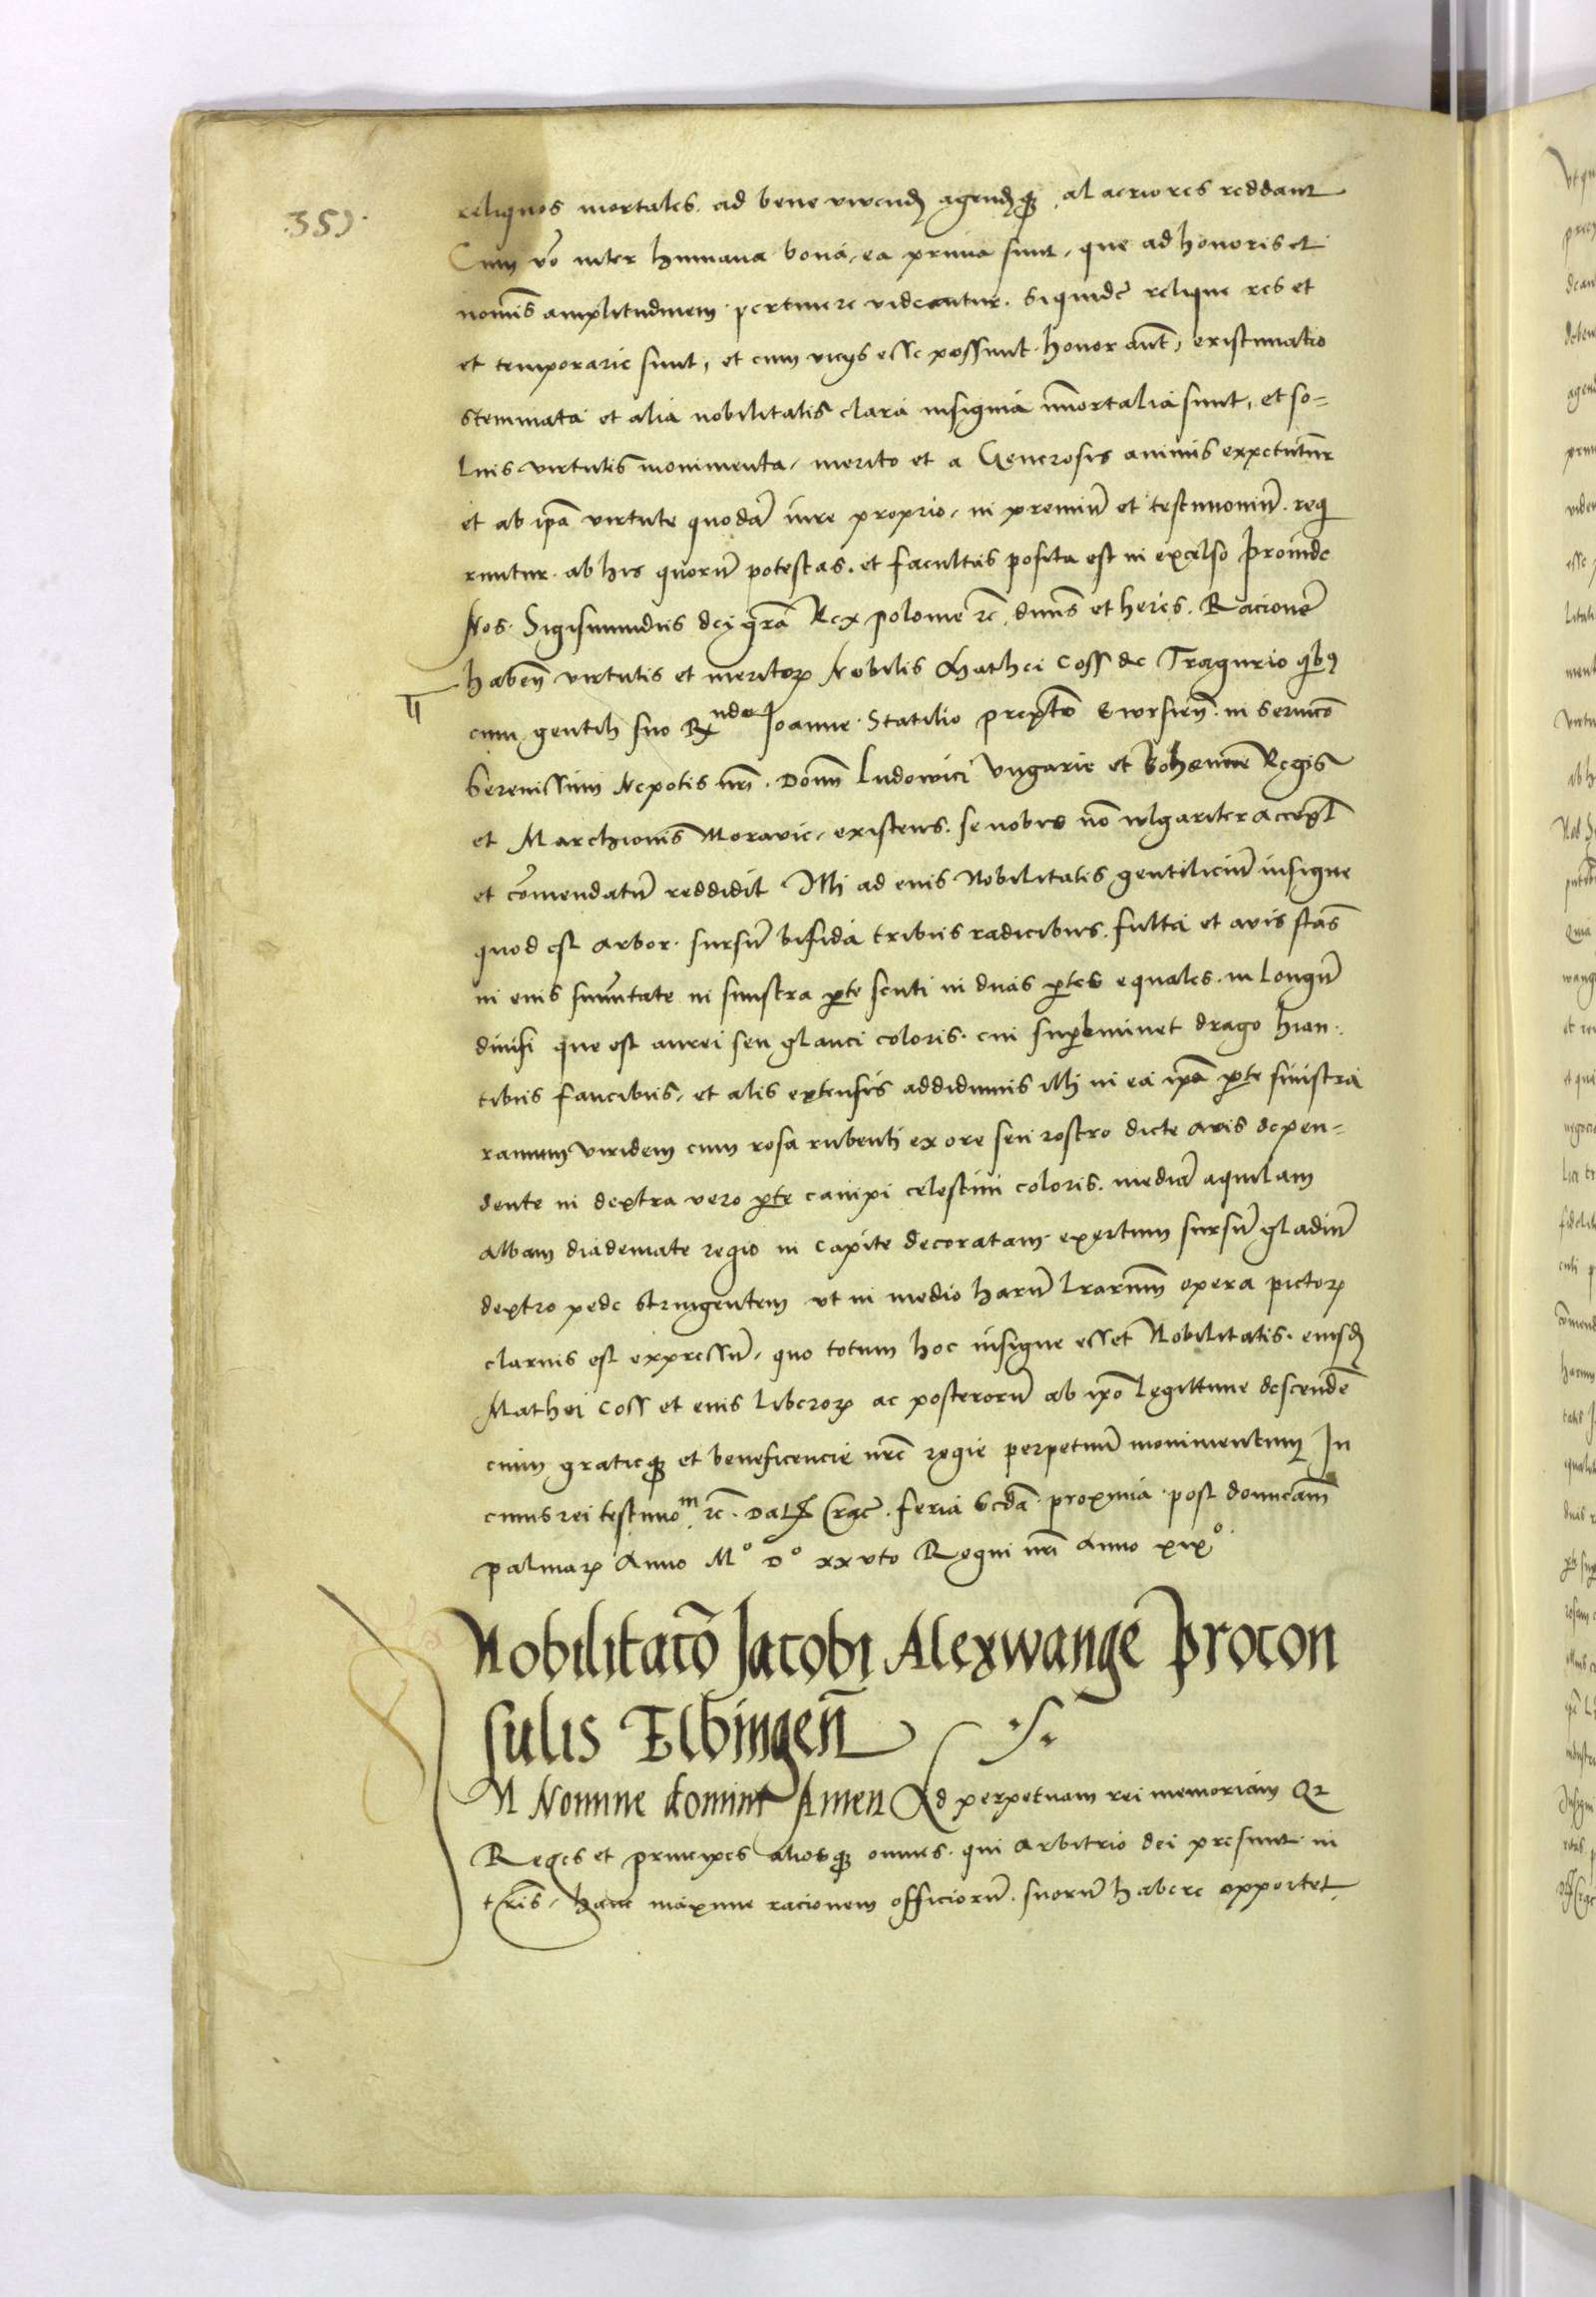 359.
reliquos mortales. ad bene vivend̄ agend̄q̄ȝ alacriores reddant
Cum v̄o inter humana bona, ea prima sunt, que ad honoris et
nom̄is amplitudinem pertinere videantur. Siquidē relique res et
et temporarie sunt, et cum vicijs esse possunt. honor aūt, existimatio
stemmata et alia nobilitatis clara insignia īmortalia sunt, et so=
lius virtutis monimenta, merito et a Generosis animis expetūtur
et ab ip̄a virtute quodā iure proprio, in premiū et testimoniū. requi
runtur. ab his quorū potestas. et facultas posita est in excelso Proinde
Nos. Sigismundus dej gr̄a Rex polonie rc̄. dn̄us et heres. Racionē
haben̄ virtutis et meritoꝝ Nobilis Mathei Coss de Tragurio qbꝯ
cum gentili suo Rndo Joanne Statilio prep̄to Ewrsien̄. in servicō
Serenissimi Nepotis nrī. Domī Ludowici Vngarie et Bohemie Regis
et Marchionis Moravie, existens. se nobis nō vulgariter accept̄
et cōmendatū reddidit Illi ad eius Nobilitatis gentiliciū insigne
quod est arbor. sursū bifida tribus radicibus. fulta et avis stās
in eius sum̄itate in sinistra p̄te scuti in duas p̄tes equales. in longū
divisi que est aurei seu glauci coloris. cui sup̄eminet drago hian.
tibus faucibus, et alis extensis addidimus illi in ea ip̄a p̄te sinistra
ramum viridem cum rosa rubenti ex ore seu rostro dicte avis depen=
dente in dextra vero p̄te campi celestini coloris. mediā aquilam
albam diademate regio in capite decoratam. exertum sursū gladiū
dextro pede stringentem vt in medio harū lrarum̄ opera pictoꝝ
clarius est expressū, quo totum hoc insigne esset Nobilitatis. eiusd̄
Mathei Coss et eius liberoꝝ ac posterorū ab ip̄o legittime descendē
cium gratieq̄ȝ et beneficencie nrē regie perpetuū monimentum In
cuius rei testimom rc̄. Dat̄ Crac̄. feria Scdā. proxima post domicam̄
palmaꝝ Anno Mº Dº xxvto Regni nrī Anno xixº
Nobilitacō Jacobi Alexwange Procon
sulis Elbingen̄
N Nomine domini Amen Ad perpetuam rei memoriam Qr
Reges et principes aliosq̄ȝ omnes. qui arbitrio dei presunt in
trīs, hanc maxime racionem officiorū. suorū habere opportet